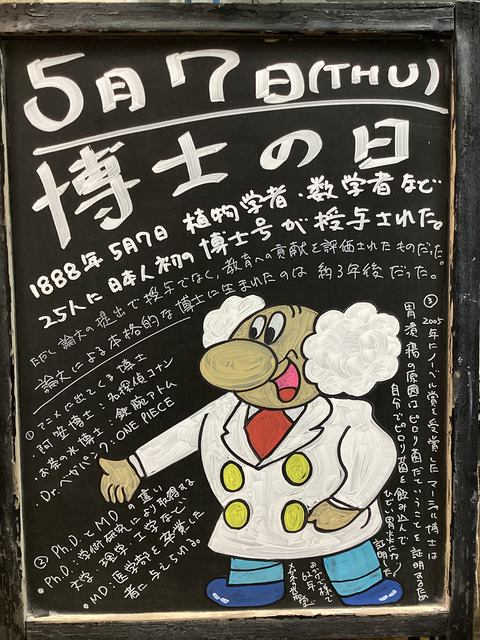 5月7日(THU)
博士の日
1888年 5月7日 植物学者・数学者など
25人に日本人初の博士号が授与された。
ただし 論文の提出で授与でなく、教育への貢献を評価されたものだった。
論文による本格的な博士に生まれたのは 約3年後だった。
① アニメに出てくる博士
・阿笠博士:名探偵コナン
・お茶の水博士:鉄腕アトム
・Dr.ベガパンク:ONE PIECE
② Ph.D.とM.D.の違い
・Ph.D.:学術研究により取得する
理学・工学など
・M.D.:医学部を卒業した
者に与えられる。
③ 2005年にノーベル賞を受賞したマーシャル博士は
胃潰瘍の原因はピロリ菌だということを証明する為
自分でピロリ菌を飲み込んで
ひどい胃炎になり
証明した!
おかげ様で
62年